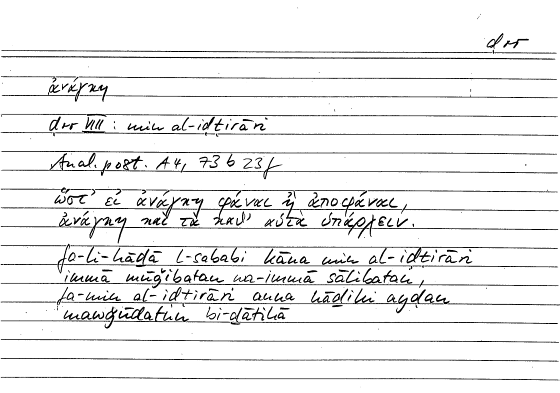 ḍrr
ἀνάγκη
ḍrr VIII : min al-iḍṭirāri
Anal. post. A 4, 73 b 23f
ὥστ᾽ εἰ ἀνάγκη φάναι ἢ ἀποφάναι,
ἀνάγκη καὶ τὰ καθ᾽ αὑτὰ ὑπάρχειν.
fa-li-hāḏā l-sababi kāna min al-iḍṭirāri
immā mūǧibatan wa-immā sālibatan,
fa-min al-iḍṭirāri anna hāḏihi ayḍan
mawǧūdatun bi-ḏātihā